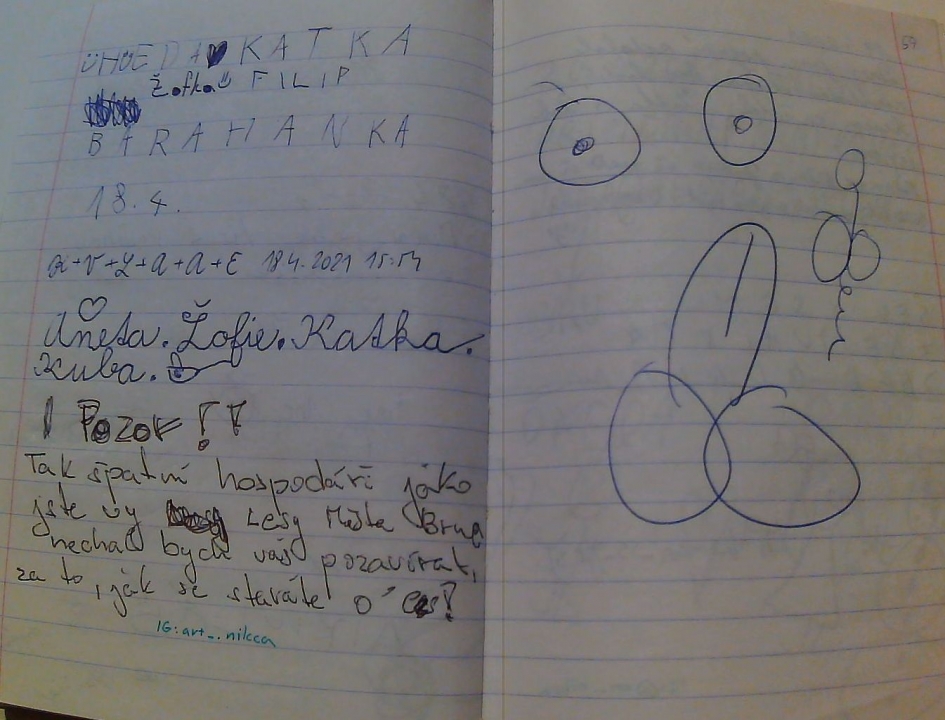 KATKA
Žofka FILIP
BARA HANKA
18.4.
K+V+Ž+A+A+E 18.4.2021 15:54
Aneta. Žofie. Katka.
Kuba.
! Pozor!!
Tak špatní hospodáři jako
jste vy Lesy Města Brna
nechal bych vás pozavírat,
za to, jak se staráte o les!
IG:art_.nikca
59